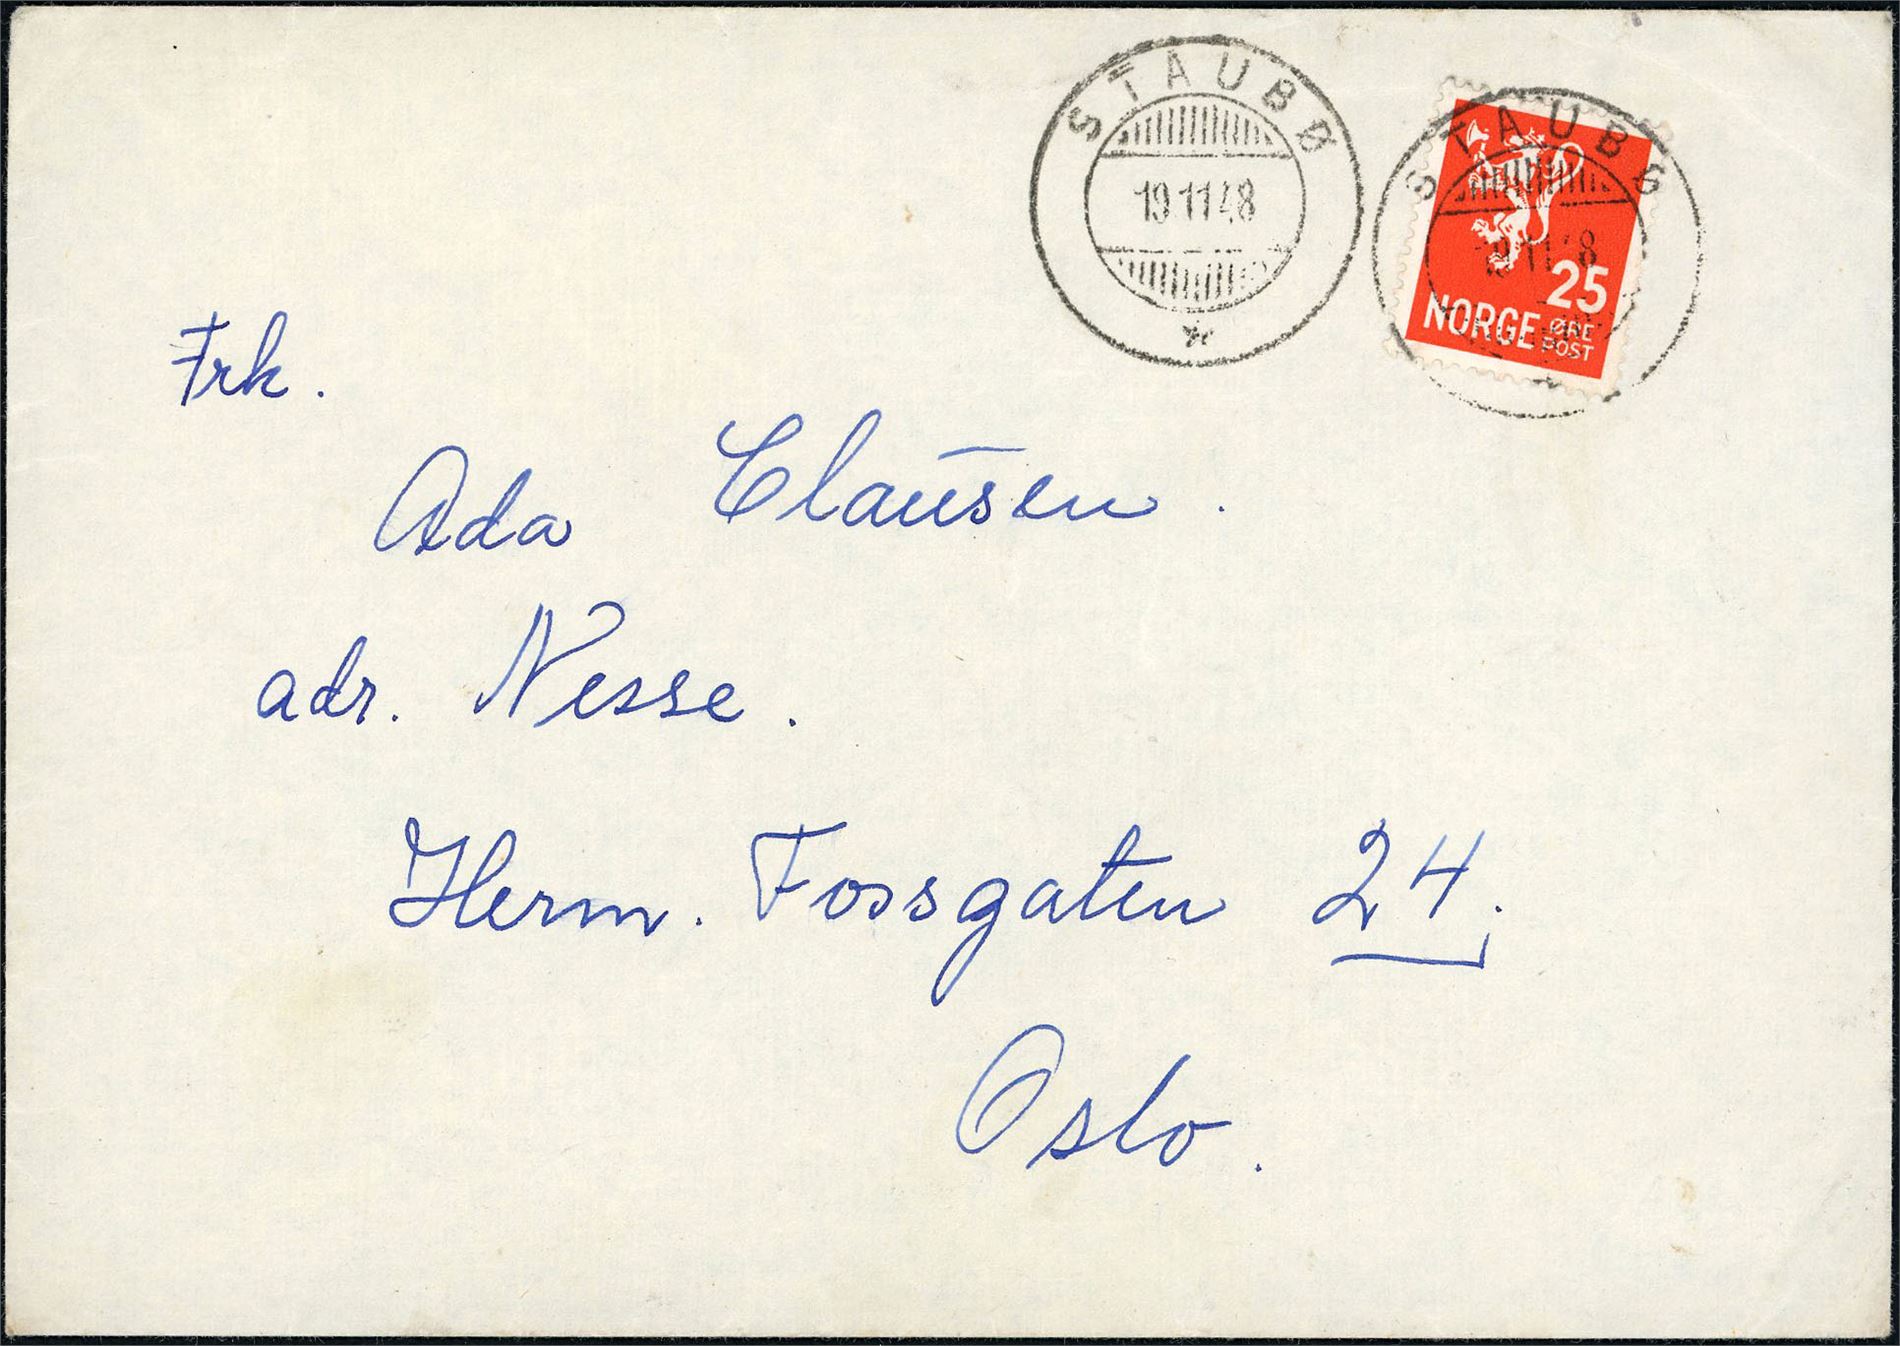 STAUBØ
19 11 48
STAUBØ
19 11 48
25
NORGE ØRE
POST
Frk.
Ada Clausen.
adr. Nesse.
Herm. Fossgaten 24.
Oslo.